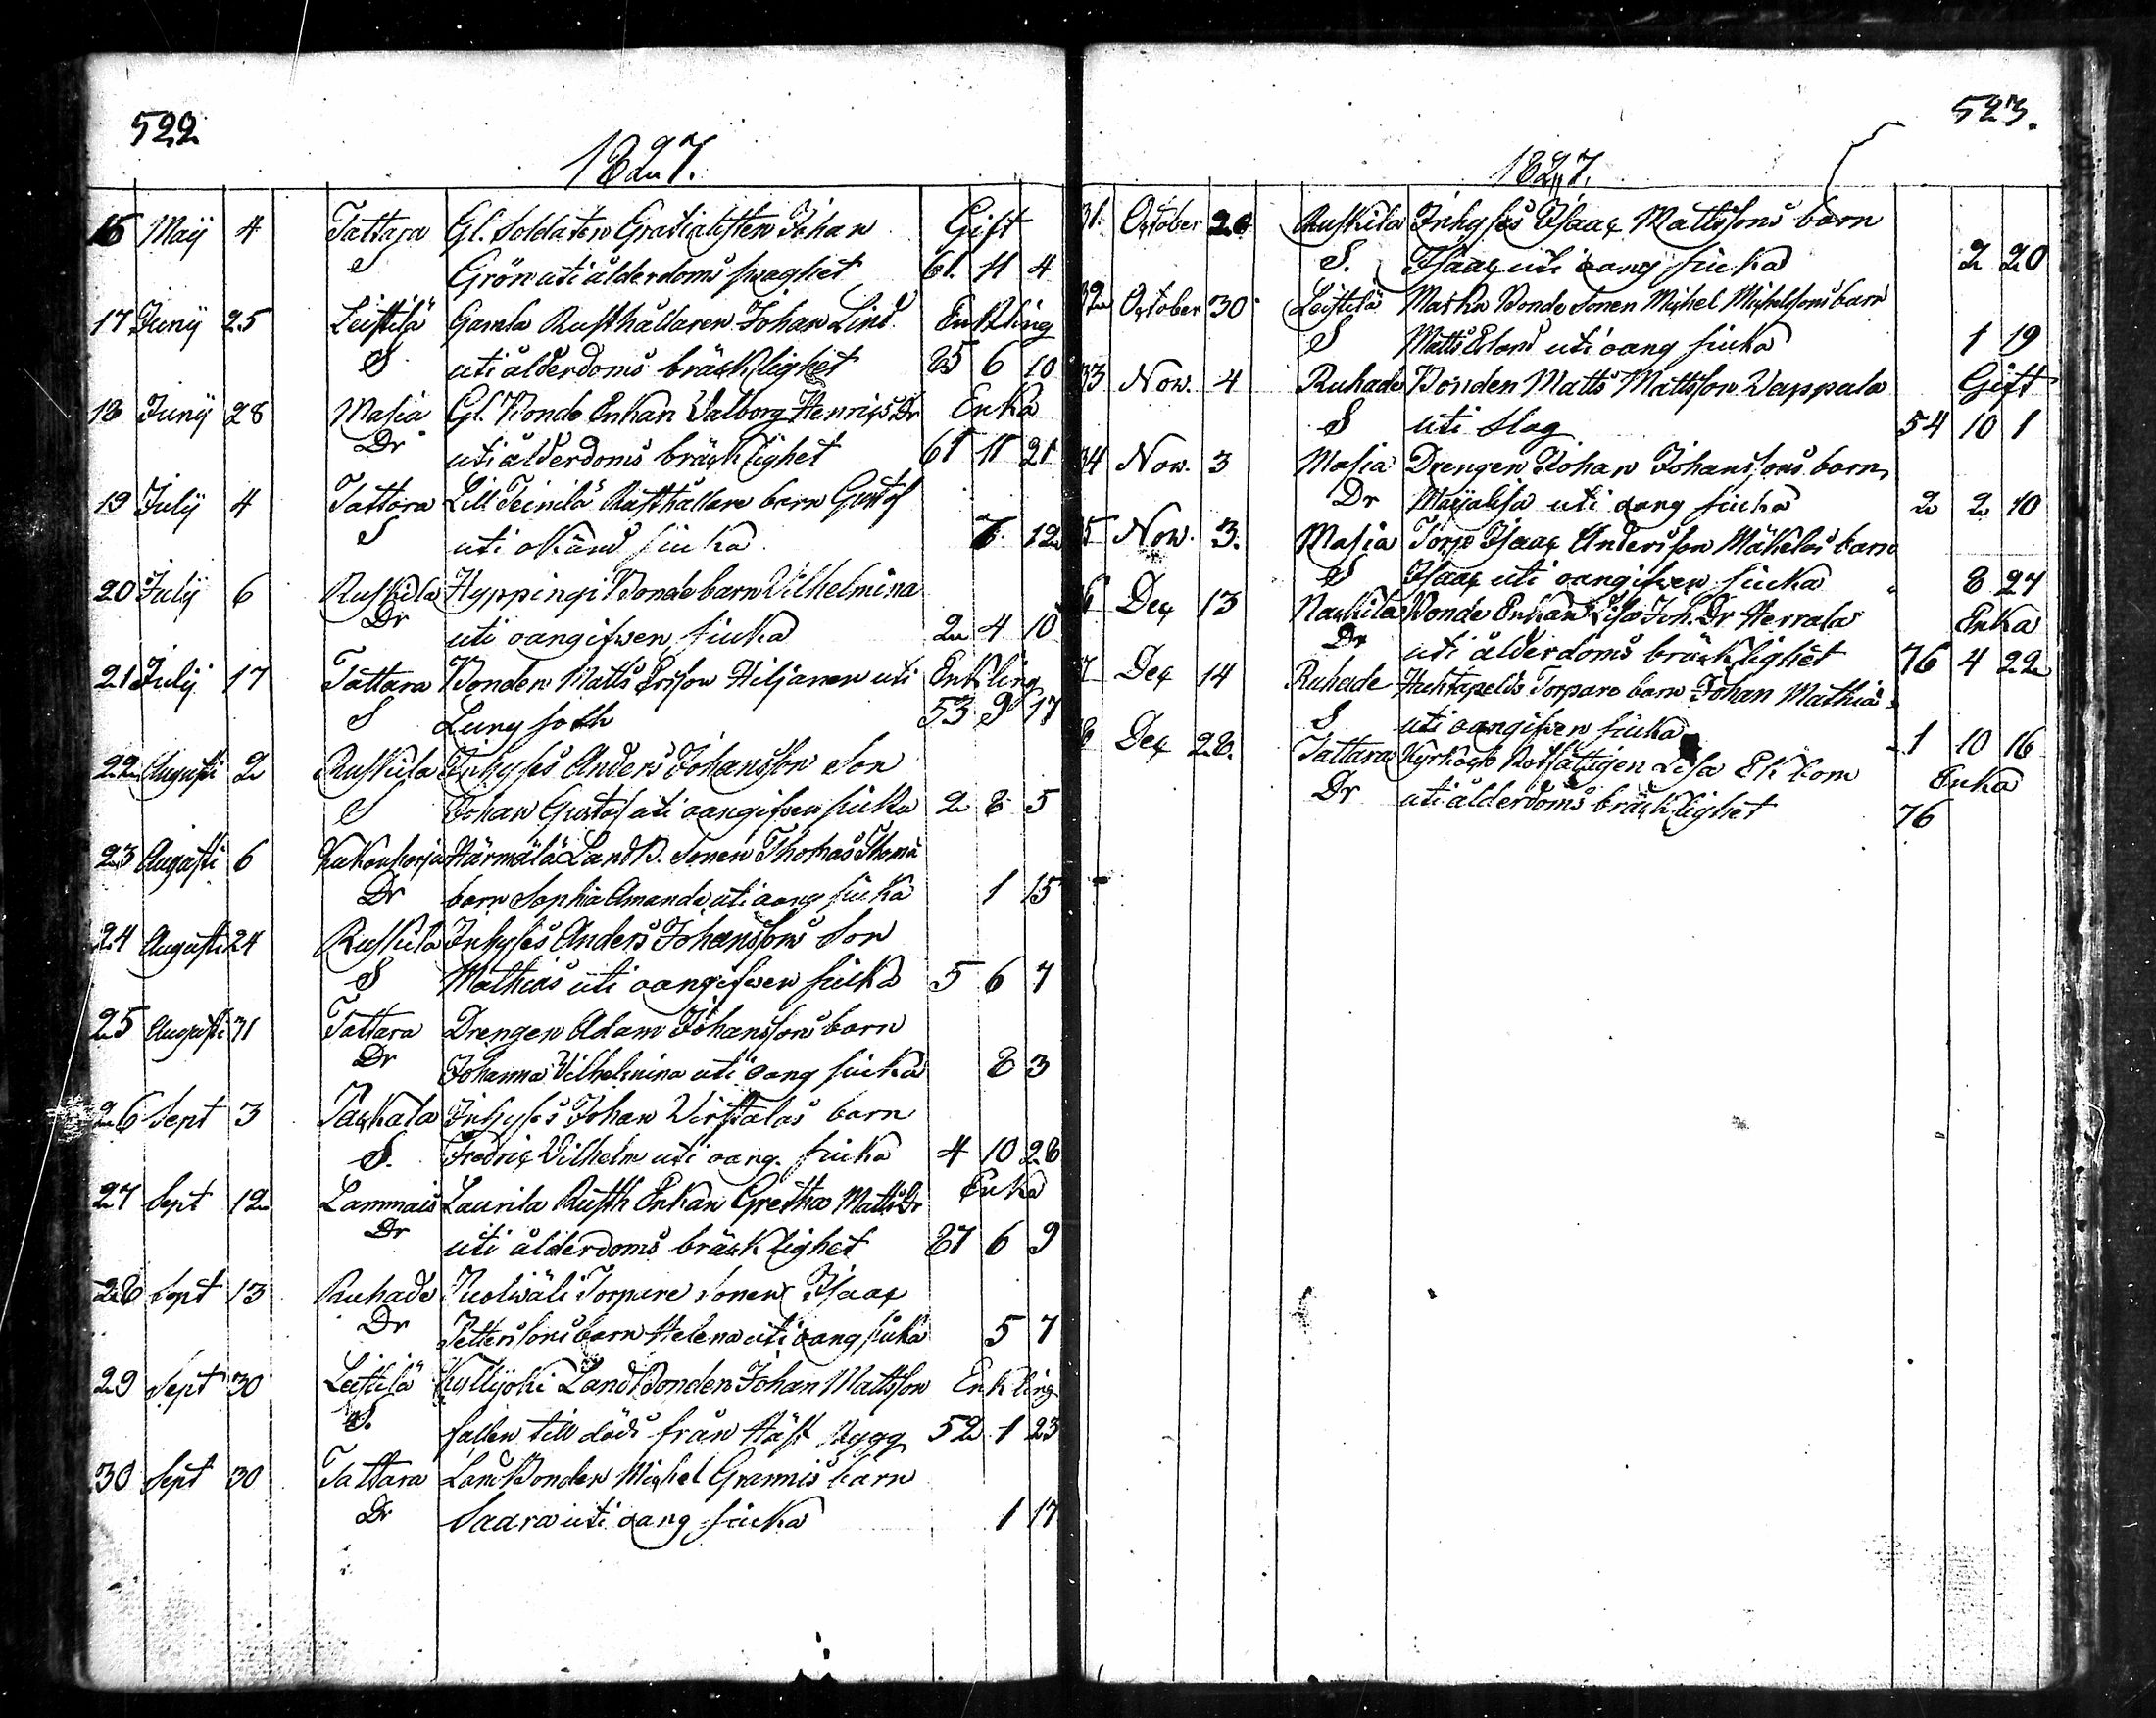 522
1827.
16 Maij 4 Tattara Gl. Soldaten Gratialisten Johan Gift
S Grön uti ålderdoms swaghet 61. 11 4
17 Junij 25 Leistilä Gamla Rusthållaren Johan Lind Enkling
S uti ålderdoms bräcklighet 85 6 10
18 Junij 28 Masia Gl. Bonde Enkan Walborg Henrics Dr Enka
Dr uti ålderdoms bräcklighet 61 11 21
19 July 4 Tattara Lill Teinilä Rusthållare barn Gustof
S uti okänd siuka 7 12
20 July 6 Ruskila Hyppingi Bonde barn Vilhelmina
Dr uti oangifwen siuka 2 4 10
21 July 17 Tattara Bonden Matts Ersson Hiljanen uti Enkling
S Lung soth 53 9 17
22 Augusti 2 Ruskila Inhyses Anders Johansson Son
S Johan Gustof uti oangifwen siuka 2 8 5
23 Augusti 6 Kukonharja Härmälä LandB. Sonen Thomas Thomæ
Dr barn Sophia Amanda uti oang siuka 1 15
24 Augusti 24 Ruskila Inhyses Anders Johanssons Son
S Mathias uti oangifwen siuka 5 6 7
25 Augusti 31 Tattara Drengen Adam Johanssons barn
Dr Johanna Vilhelmina uti oang siuka 8 3
26 Sept 3 Tackala Inhyses Johan Virstalas barn
S. Fredric Vilhelm uti oang. siuka 4 10 28
27 Sept 12 Lammais Laurila Rusth Enkan Gretha Matts Dr Enka
Dr uti ålderdoms bräcklighet 87 6 9
28 Sept 13 Ruhade Torpare Sonen Isaac
Dr Petterssons barn Helena uti oang siuka 5 7
29 Sept 30 Leistilä Kyllijoki LandBonden Johan Mattsson Enkling
S. fallen till döds från Häst Rygg 52 1 23
30 Sept 30 Tattara LandBonden Michel Grannis barn
Dr Saara uti oang siuka 1 17
523.
1827.
31. October 20 Ruskila Inhyses Isaac Mattssons barn
S. Isaac uti oang siuka 2 20
32 October 30 Leistilä Matka Bonde Sonen Michel Michelssons barn
S Matts Erland uti oang siuka 1 19
33 Nov. 4 Ruhade Bonden Matts Mattsson Wappala Gift
S uti Slag 54 10 1
34 Nov. 3 Masia Drengen Johan Johanssons barn
Dr Majalisa uti oang siuka 2 2 10
5 Nov. 3. Masia Torp Isaac Andersson Mäkeläs barn
S Isaac uti oangifwen siuka 8 27
6 Dec 13 Nackila Bonde Enkan Lisa Joh. Dr Herrala Enka
Dr uti ålderdoms bräcklighet 76 4 22
7 Dec 14 Ruhade Torpare barn Johan Mathias
S uti oangifwen siuka 1 10 16
8 Dec 28. Tattara Kyrkoch Rotfattigen Lisa Ekbom Enka
Dr uti ålderdoms bräcklighet 76